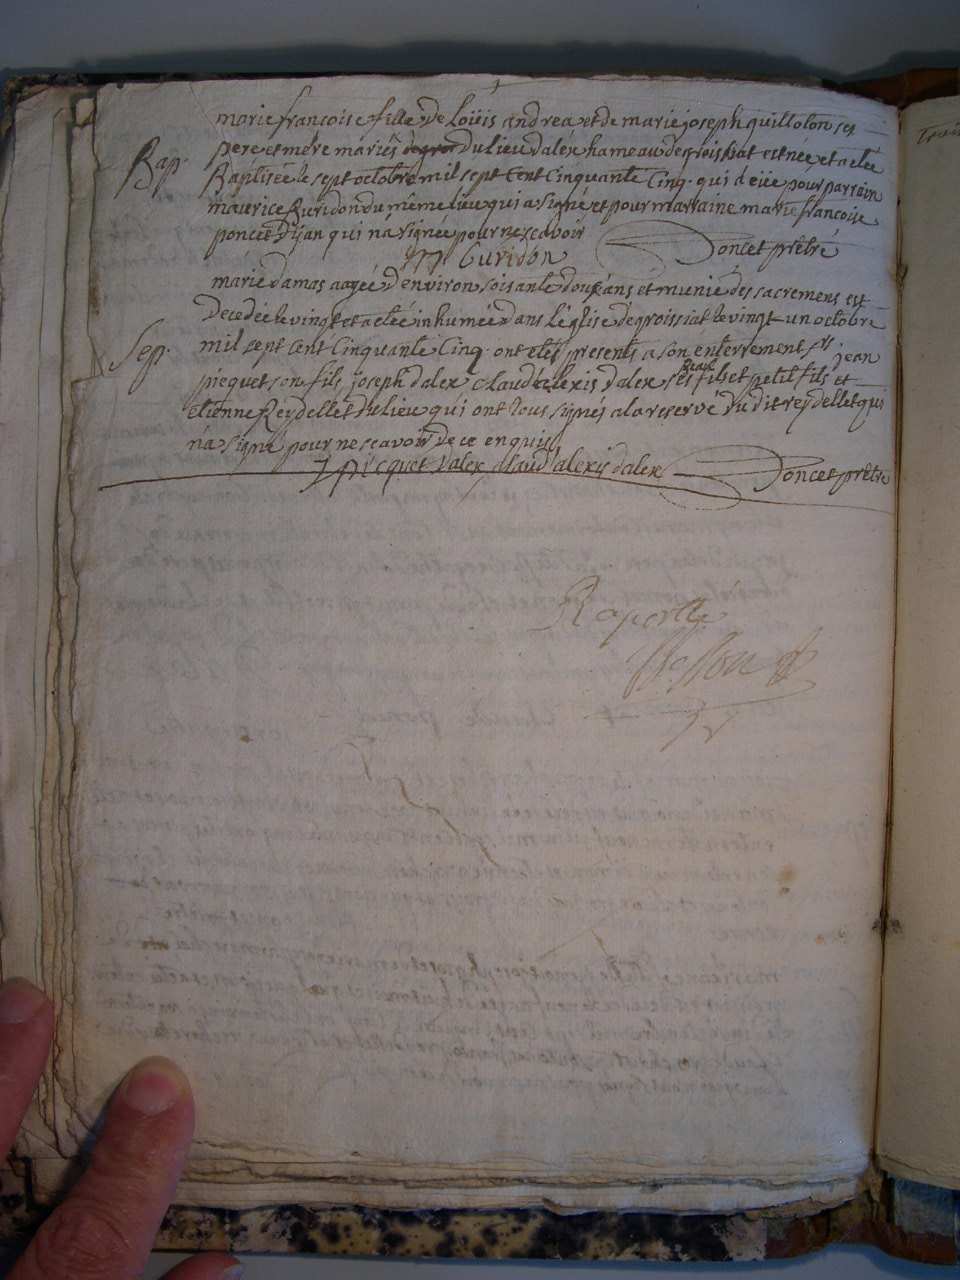 marie francoise fille de Loüis andrea et de marie joseph quillolon ses
Bap. pere et mere mariés du lieu dalex hameau de groissiat est née et a eté
Baptisée le sept octobre mil sept cent cinquante cinq. qui a eüe pour parrain
maurice Guridon du même lieu qui a signé et pour marraine marie francoise
poncet dijan qui na signée pour ne scavoir
M Guridon Poncet prêtre
marie damas aagée d'environ soisante douze ans et munie des sacremens est
decedée le vingt et a eté inhumée dans l'église de groissiat le vingt-un octobre
Sep. mil sept cent cinquante cinq. ont etés presents a son enterrement jean
piequet son fils joseph dalex claud alexis dalex ses beau fils et petit fils et
etienne Reydellet du lieu qui ont tous signés a la reserve du dit reydellet qui
n'a signé pour ne scavoir de ce enquis
J picquet dalex claud alexis dalex Poncet prêtre